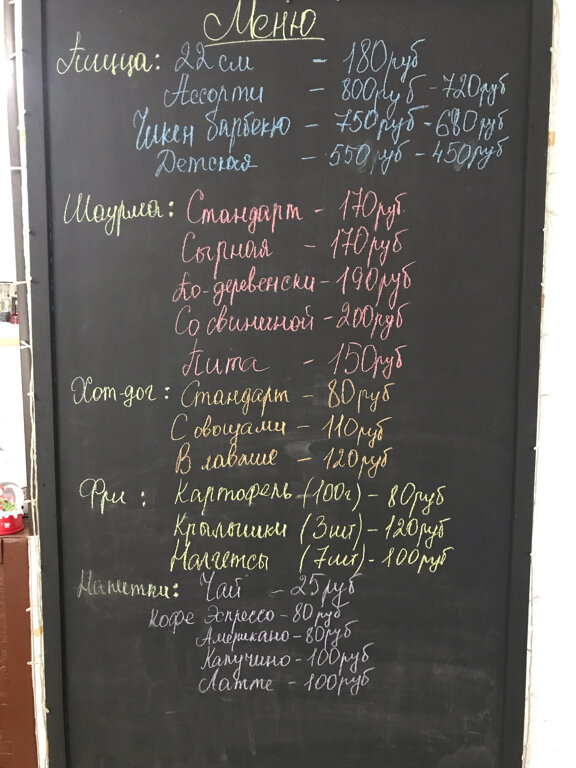 Меню
Пицца: 22 см - 180 руб
Ассорти - 800 руб - 720 руб
Чикен барбекю - 750 руб - 680 руб
Детская - 550 руб - 450 руб
Шаурма: Стандарт - 170 руб
Сырная - 170 руб
По-деревенски - 190 руб
Со свининой - 200 руб
Пита - 150 руб
Хот-дог: Стандарт - 80 руб
С овощами - 110 руб
В лаваше - 120 руб
Фри: Картофель (100г) - 80 руб
Крылышки (3шт) - 120 руб
Наггетсы (7шт) - 100 руб
Напитки: Чай - 25 руб
Кофе Эспрессо - 80 руб
Американо - 80 руб
Капучино - 100 руб
Латте - 100 руб